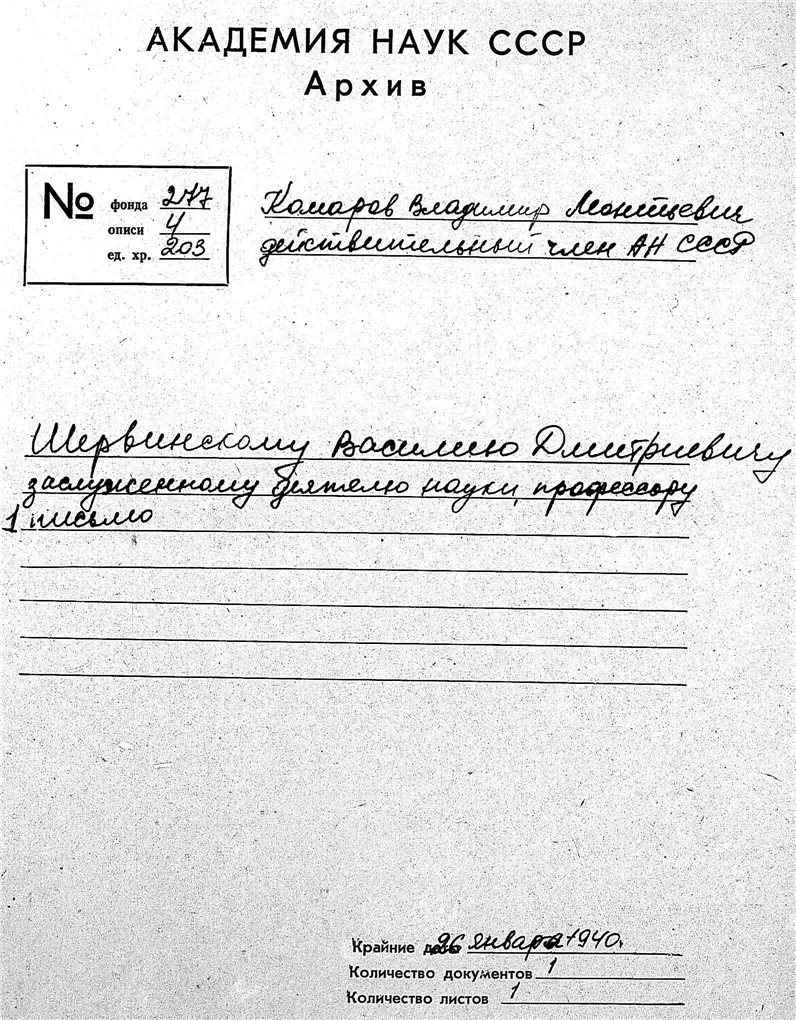 АКАДЕМИЯ НАУК СССР
Архив
№ фонда 277
описи 4
ед. хр. 203
Комаров Владимир Леонтьевич
действительный член АН СССР
Шервинскому Василию Дмитриевичу
заслуженному деятелю науки, профессору
1 письмо
Крайние даты 26 января 1940.
Количество документов 1
Количество листов 1